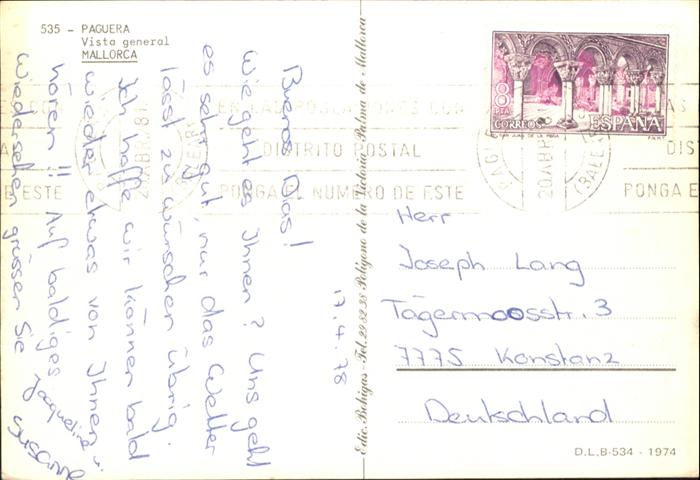 535 - PAGUERA
Vista general
MALLORCA
Buenos Dias!
Wie geht es Ihnen? Uns geht
es sehr gut, nur das Wetter
lässt zu wünschen übrig.
Ich hoffe wir können bald
wieder etwas von Ihnen
hören!! Auf baldiges
Wiedersehen grüssen Sie
Jacqueline u.
Susanne
17.4.78
Edic. Bohigas - Tel. 29 52 38 Polígono de la Victoria, Palma de Mallorca
8
PTA
CORREOS
ESPAÑA
EN LAS POBLACIONES CON
DISTRITO POSTAL
PONGA EL NUMERO DE ESTE
PAGUE
20 ABR 78
(BALEA
DIST
PONGA E
Herr
Joseph Lang
Tägermoosstr. 3
7775 Konstanz
Deutschland
D.L.B-534 - 1974